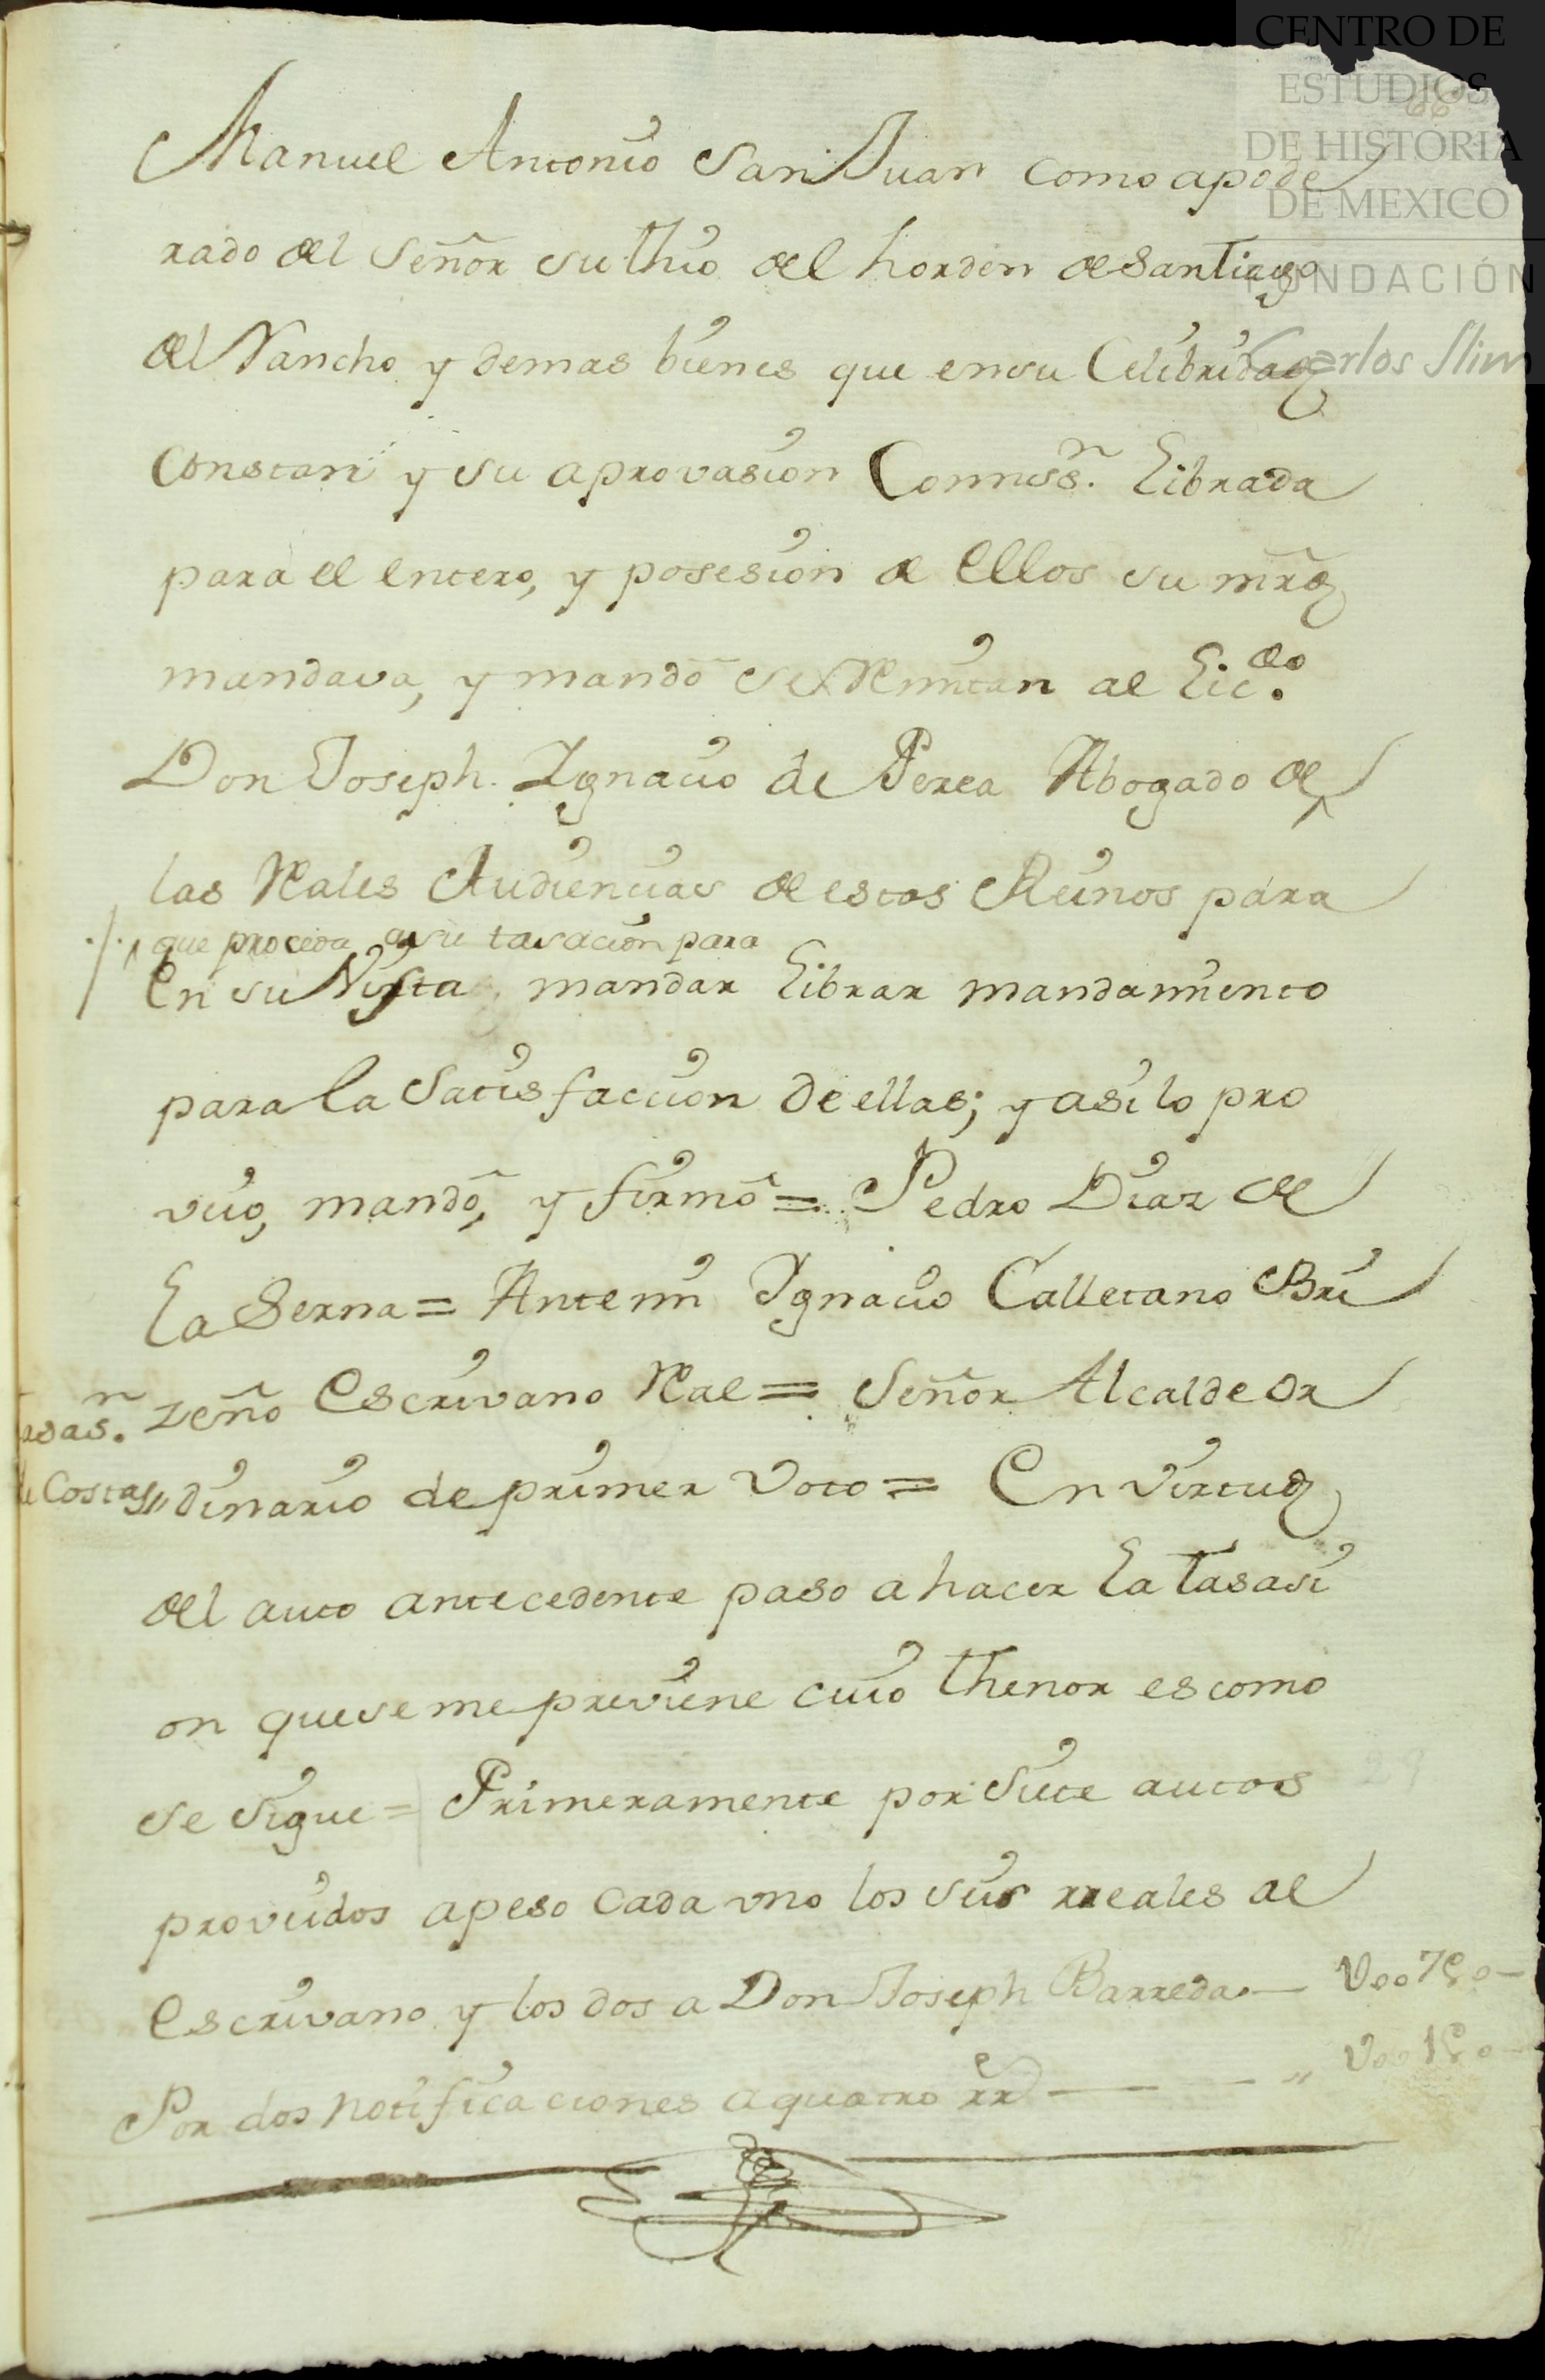 CENTRO DE
ESTUDIOS
DE HISTORIA
DE MEXICO
FUNDACIÓN
Carlos Slim
66
Manuel Antonio San Juan como apode
rado del Señor su thio del horden de Santiago
del Rancho y demas bienes que en su Celebridad
Constan y su aprovasion Commiss.n librada
para el entero, y posesion de ellos su mrd
mandava, y mandó se Remitan al Lic.do
Don Joseph Ignacio de Perea Abogado de
las Rales Audiencias de estos Reinos para
que proceda a su tasacion para
En su Vista, mandar librar mandamiento
para la Satisfaccion de ellas; y asi lo pro
veio, mandó, y firmó = Pedro Diaz de
la Serna = Antemi Ignacio Calletano Bri
zeño Escrivano Ral = Señor Alcalde or
asas.n
de Costas,, dinario de primer voto = En virtud
del auto antecedente paso a hacer la tasasi
on que se me previene cuio thenor es como
se sigue = Primeramente por siete autos
proveidos a peso cada uno los seis rreales al
escrivano y los dos a Don Joseph Barreda — V007p0—
Por dos notificaciones a quatro rr — — ,, V001p0—